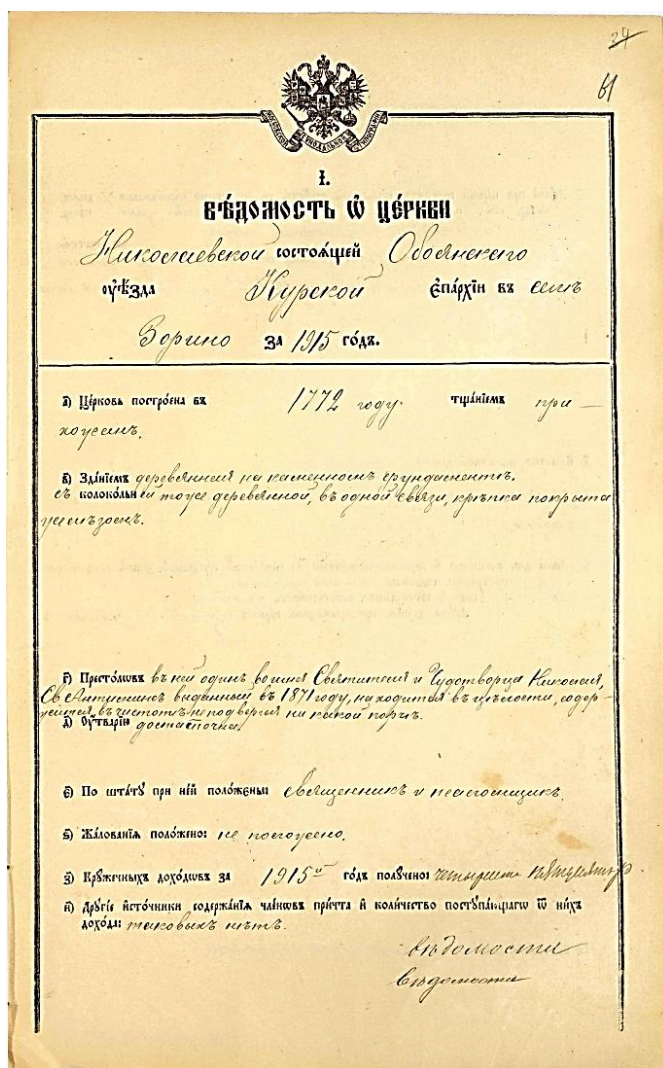 24
61
МОСКОВСКОЙ СѴНОДАЛЬНОЙ ТИПОГРАФІИ
І.
ВѢ́ДОМОСТЬ Ѡ҆ ЦЕ́РКВИ
Николаевской состоѧ́щей Обоянскаго
ᲂу҆ѣ́зда Курской є҆па́рхїи въ селѣ
Зорино за 1915 го́дъ.
а҃) Це́рковь постро́ена въ 1772 году. тща́нїемъ при-
хожанъ.
в҃) Зда́нїемъ деревянная на каменномъ фундаментѣ.
съ колоко́льней тоже деревянной, въ одной связи, крѣпка покрыта
желѣзомъ.
г҃) Престо́лѡвъ въ ней одинъ во имя Святителя и Чудотворца Николая,
Св. Антиминсъ выданный въ 1871 году, находится въ цѣлости, содер-
жится въ чистотѣ не подвергся на какой порчѣ.
д҃) Оу҆́тварїю достаточна.
є҃) По шта́тꙋ при не́й поло́жены: священникъ и псаломщикъ.
ѕ҃) Жа́лованїѧ поло́жено: не положено.
з҃) Крꙋ́жечныхъ дохо́дѡвъ за 1915й го́дъ полꙋ́чено: четыреста
и҃) Дрꙋгі́е и҆сто́чники содержа́нїѧ чле́нѡвъ при́чта и҆ коли́чество постꙋпа́ющагѡ ѿ ни́хъ
дохо́да: таковыхъ нѣтъ.
вѣдомости
вѣдомости